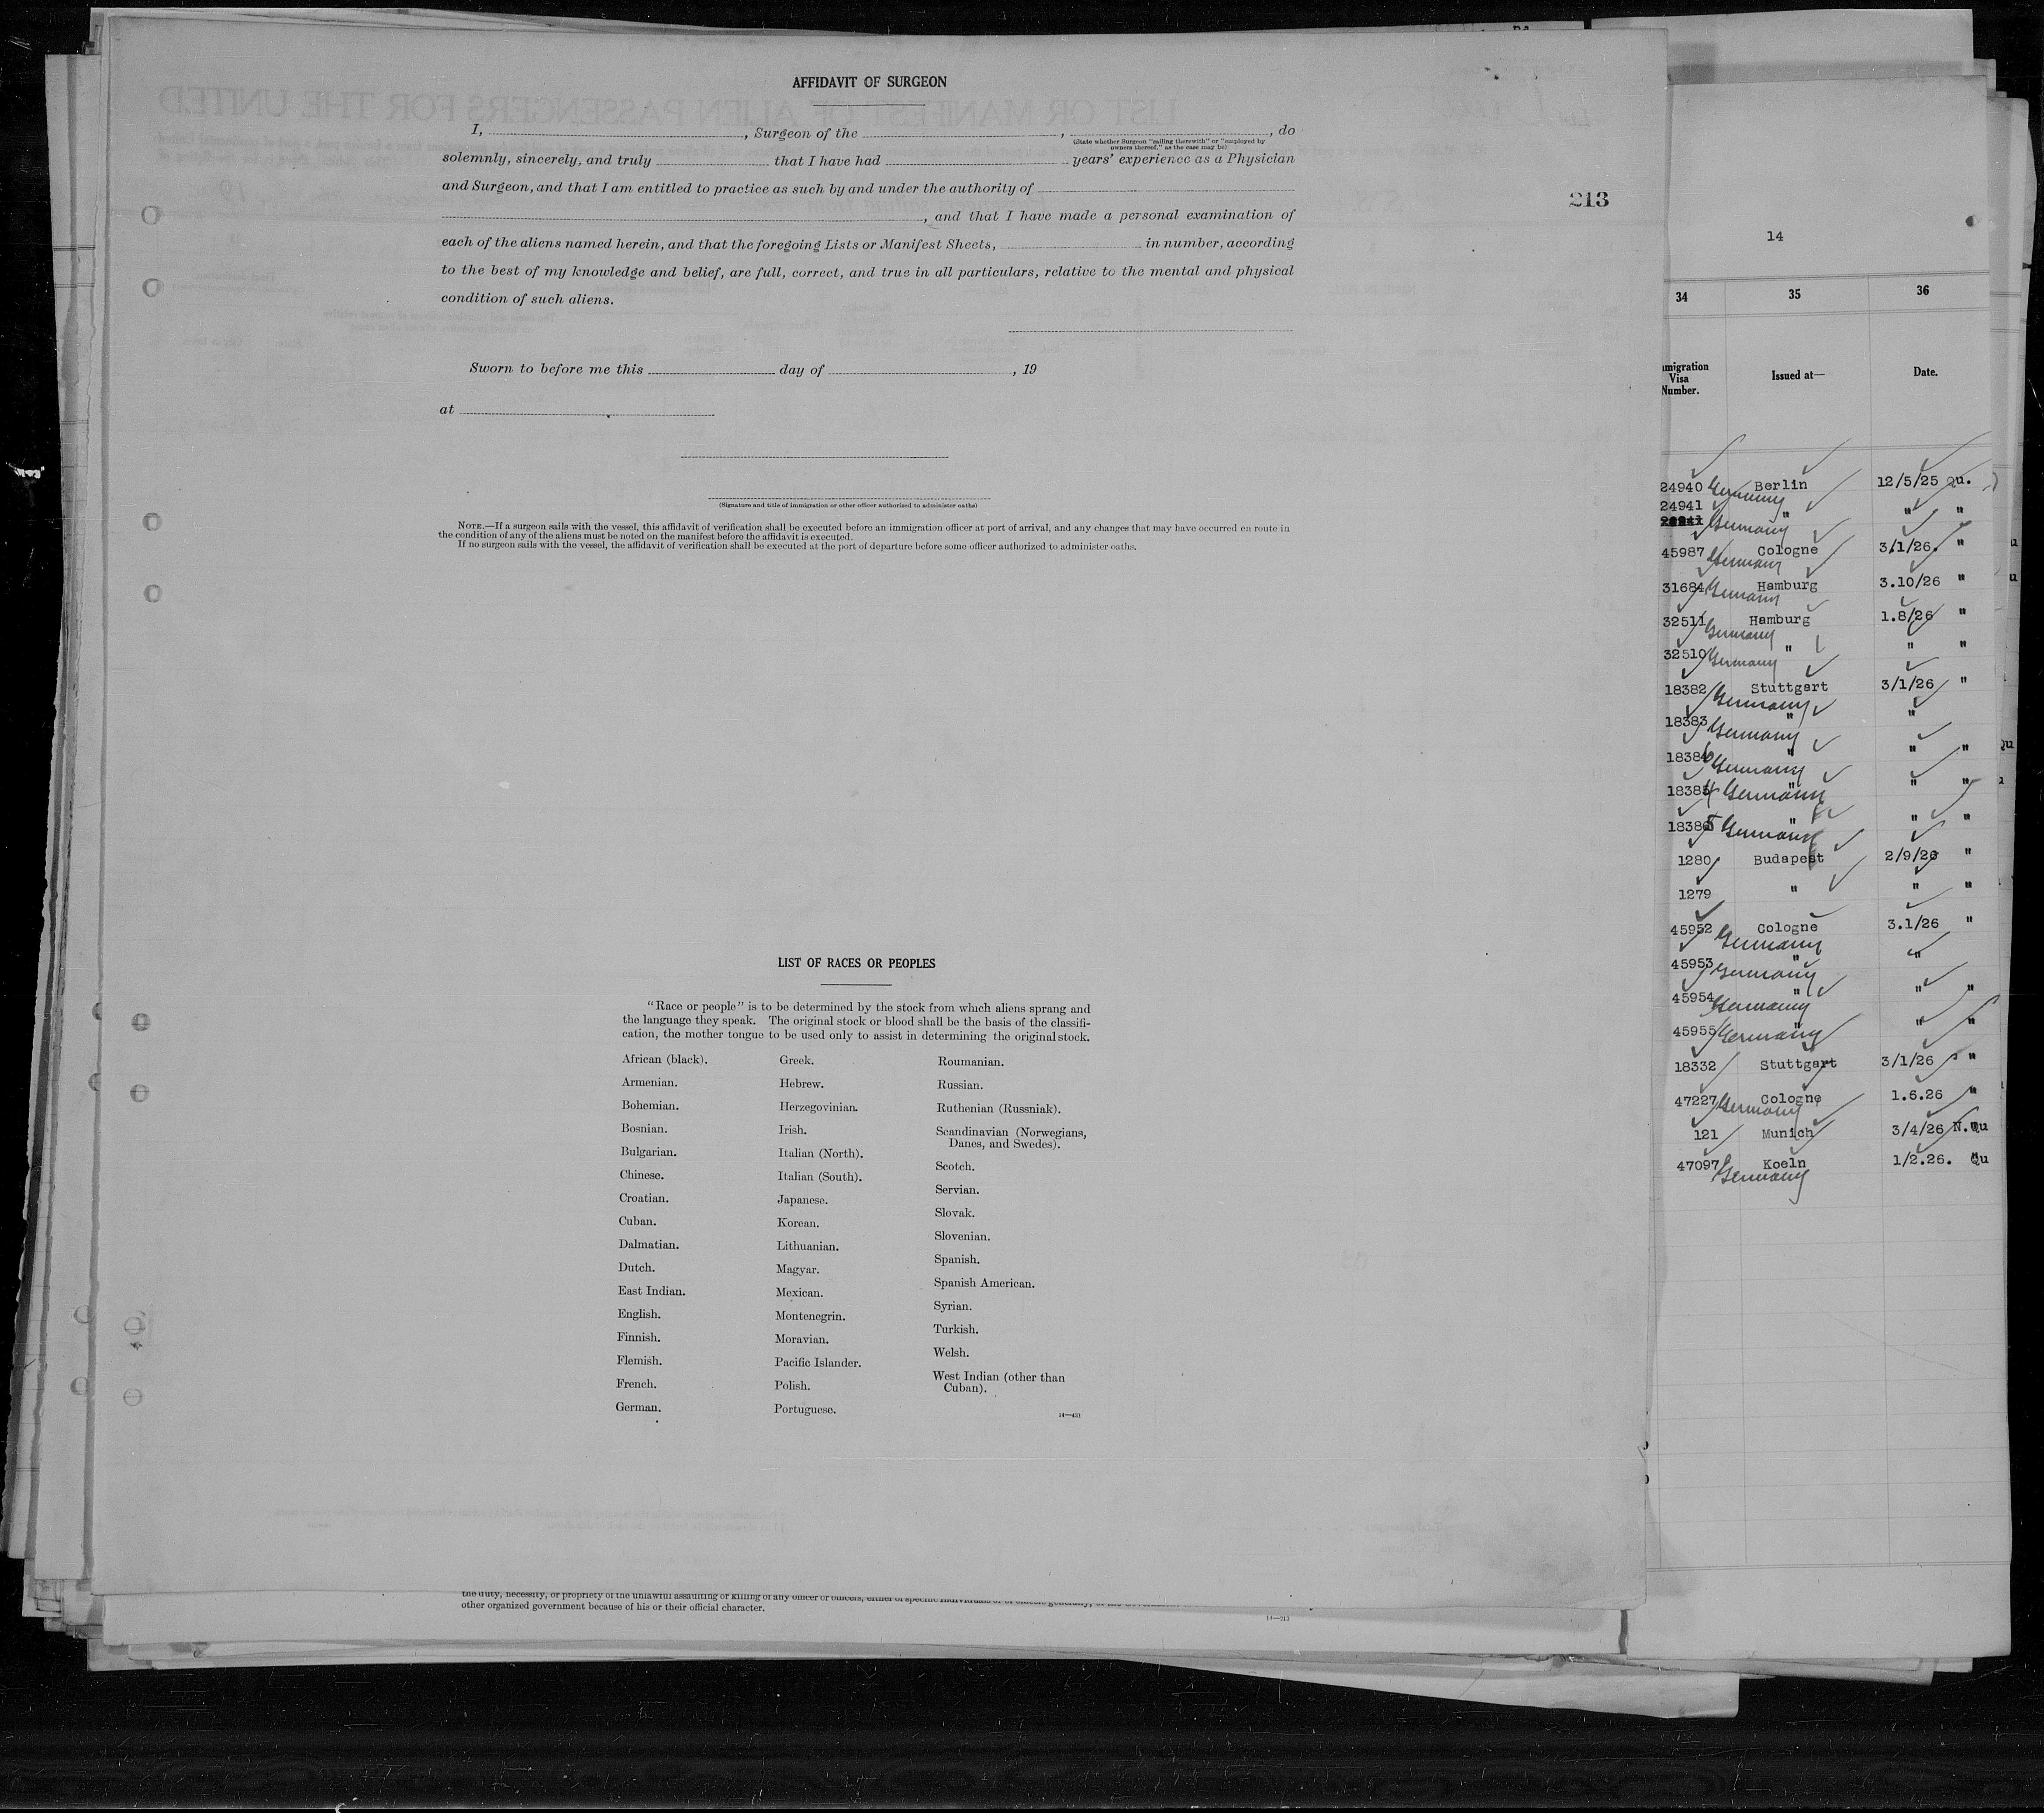 AFFIDAVIT OF SURGEON
I, , Surgeon of the , , do
(State whether Surgeon "sailing therewith" or "employed by
owners thereof," as the case may be)
solemnly, sincerely, and truly that I have had years' experience as a Physician
and Surgeon, and that I am entitled to practice as such by and under the authority of
, and that I have made a personal examination of
each of the aliens named herein, and that the foregoing Lists or Manifest Sheets, in number, according
to the best of my knowledge and belief, are full, correct, and true in all particulars, relative to the mental and physical
condition of such aliens.
Sworn to before me this day of , 19
at
(Signature and title of immigration or other officer authorized to administer oaths)
NOTE.—If a surgeon sails with the vessel, this affidavit of verification shall be executed before an immigration officer at port of arrival, and any changes that may have occurred en route in
the condition of any of the aliens must be noted on the manifest before the affidavit is executed.
If no surgeon sails with the vessel, the affidavit of verification shall be executed at the port of departure before some officer authorized to administer oaths.
213
LIST OF RACES OR PEOPLES
"Race or people" is to be determined by the stock from which aliens sprang and
the language they speak. The original stock or blood shall be the basis of the classifi-
cation, the mother tongue to be used only to assist in determining the original stock.
African (black).
Armenian.
Bohemian.
Bosnian.
Bulgarian.
Chinese.
Croatian.
Cuban.
Dalmatian.
Dutch.
East Indian.
English.
Finnish.
Flemish.
French.
German.
Greek.
Hebrew.
Herzegovinian.
Irish.
Italian (North).
Italian (South).
Japanese.
Korean.
Lithuanian.
Magyar.
Mexican.
Montenegrin.
Moravian.
Pacific Islander.
Polish.
Portuguese.
Roumanian.
Russian.
Ruthenian (Russniak).
Scandinavian (Norwegians,
Danes, and Swedes).
Scotch.
Servian.
Slovak.
Slovenian.
Spanish.
Spanish American.
Syrian.
Turkish.
Welsh.
West Indian (other than
Cuban).
14—431
the duty, necessity, or propriety of the unlawful assaulting or killing of any officer or officers, either of specific individuals or of officers generally, of the
other organized government because of his or their official character.
14—213
14
34 35 36
Visa
Number.
Issued at—
Date.
24940 Germany Berlin 12/5/25 Qu.
24941 Germany " " "
45987 Germany Cologne 3/1/26. "
31684 Germany Hamburg 3.10/26 "
32511 Germany Hamburg 1.8/26 "
32510 Germany " " "
18382 Germany Stuttgart 3/1/26 "
18383 Germany " "
1838 Germany " " "
1838 Germany " " "
1838 Germany " " "
1280 Budapest 2/9/26 "
1279 " " "
45952 Germany Cologne 3.1/26 "
45953 Germany " "
45954 Germany " " "
45955 Germany " " "
18332 Stuttgart 3/1/26 "
47227 Germany Cologne 1.6.26 "
121 Munich 3/4/26 N.Qu
47097 Germany Koeln 1/2.26. Qu